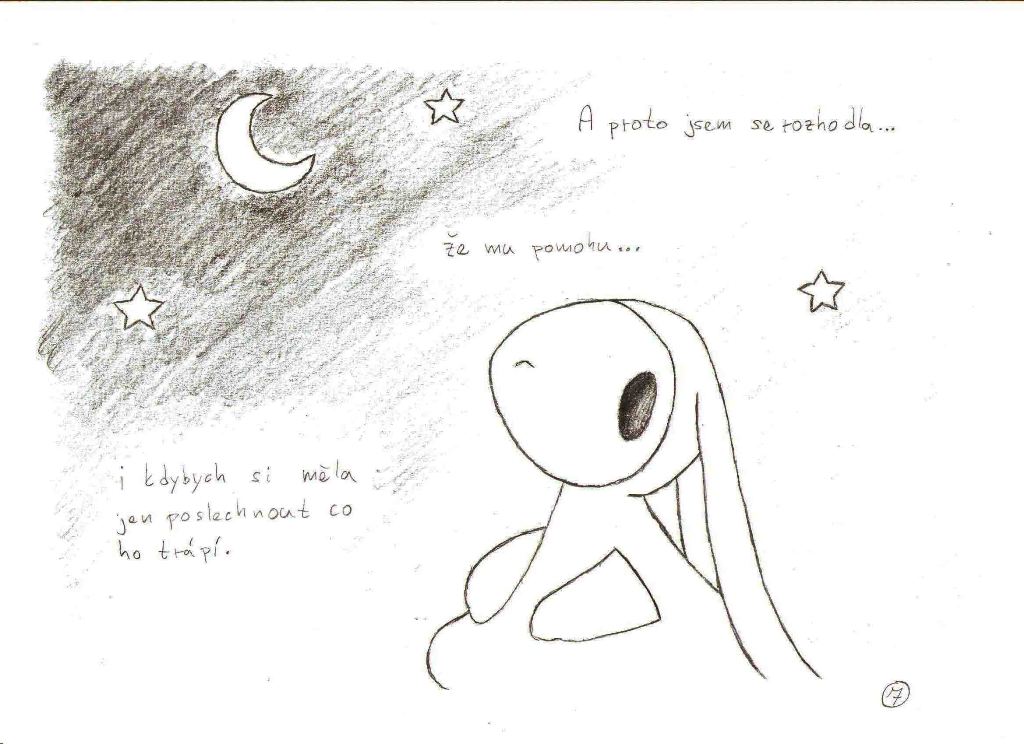 A proto jsem se rozhodla...
že mu pomohu...
i kdybych si měla
jen poslechnout co
ho trápí.
7